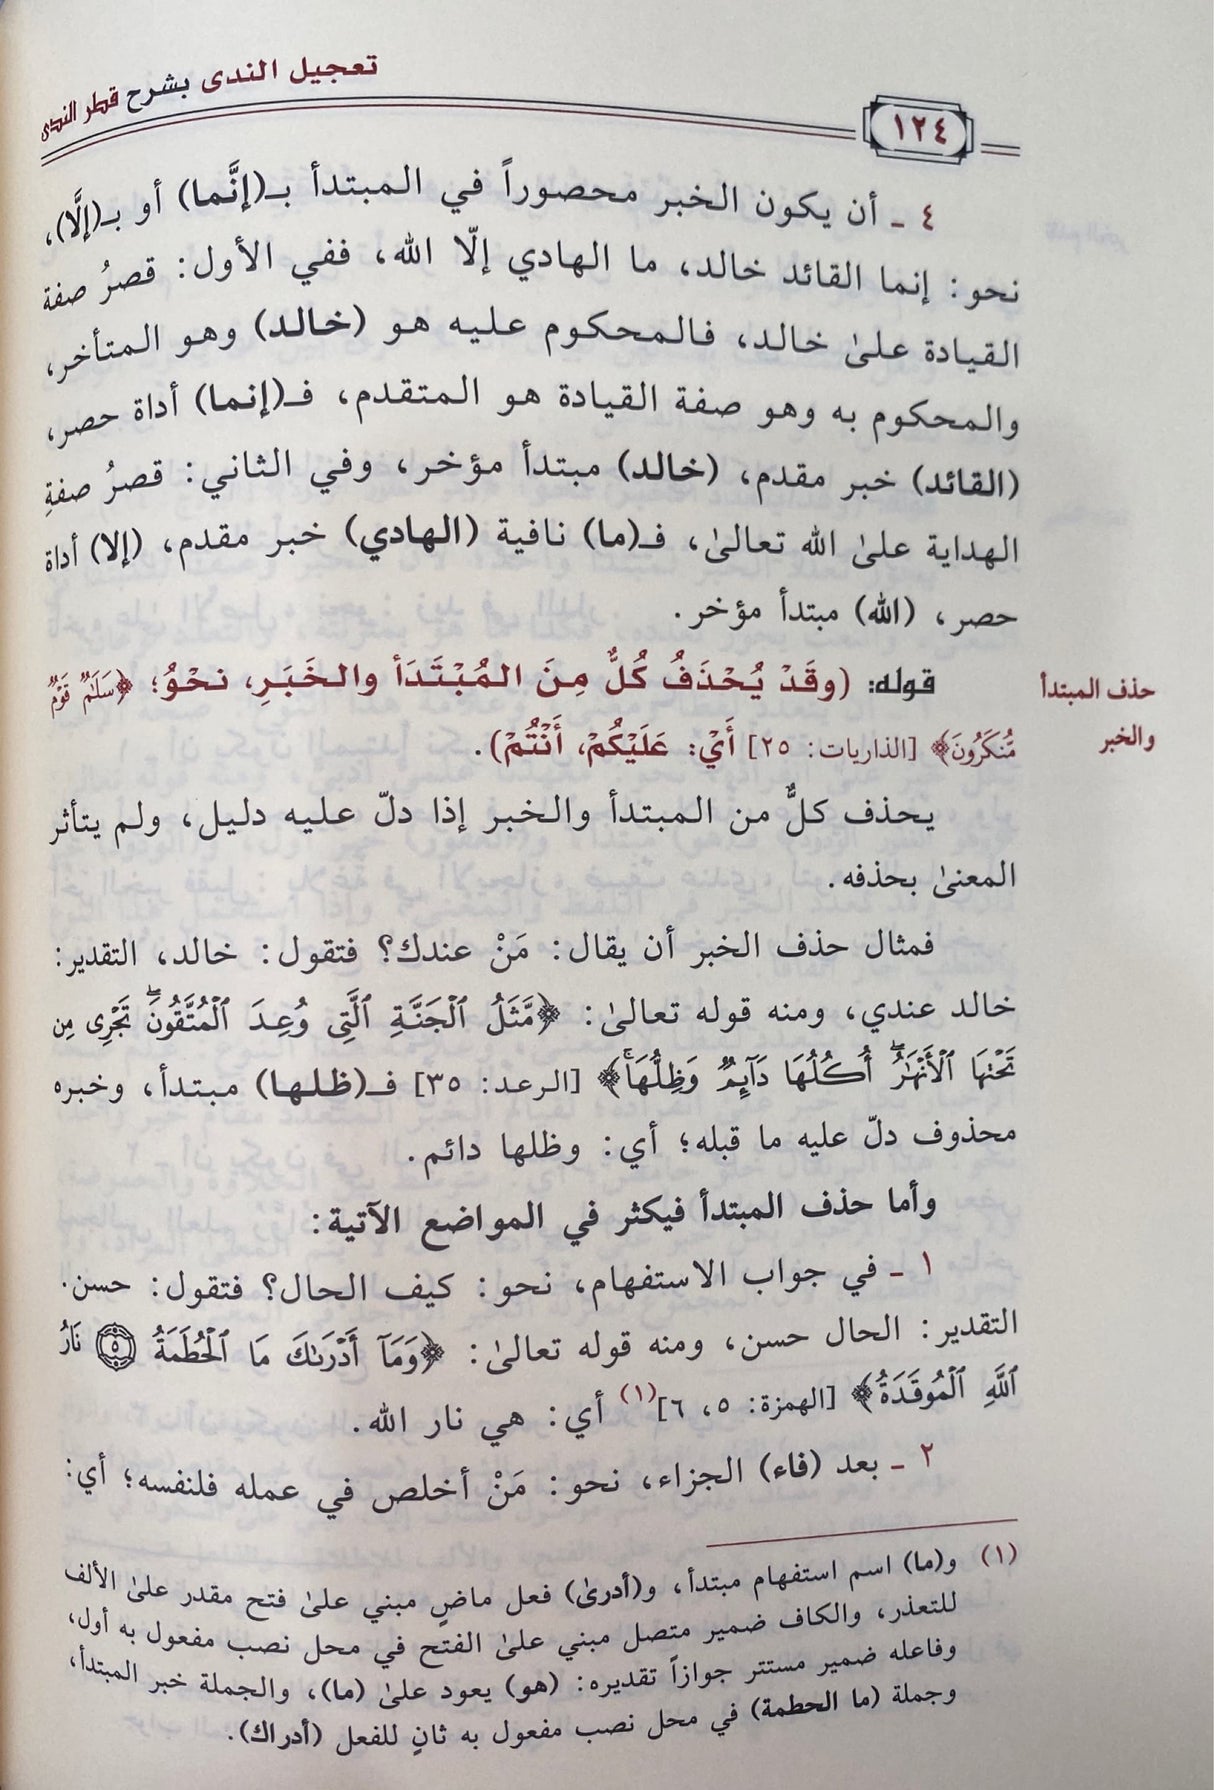 تعجيل الندى بشرح قطر الندى
١٢٤
٤ ـ أن يكون الخبر محصوراً في المبتدأ بـ(إنَّما) أو بـ(إلَّا)،
نحو: إنما القائد خالد، ما الهادي إلّا الله، ففي الأول: قصرُ صفة
القيادة علىٰ خالد، فالمحكوم عليه هو (خالد) وهو المتأخر،
والمحكوم به وهو صفة القيادة هو المتقدم، فـ(إنما) أداة حصر،
(القائد) خبر مقدم، (خالد) مبتدأ مؤخر، وفي الثاني: قصرُ صفةِ
الهداية علىٰ الله تعالىٰ، فـ(ما) نافية (الهادي) خبر مقدم، (إلا) أداة
حصر، (الله) مبتدأ مؤخر.
حذف المبتدأ
والخبر
قوله: (وقَدْ يُحْذَفُ كُلٌّ مِنَ المُبْتَدَأ والخَبَرِ، نحْوُ؛ ﴿سَلَٰمٌ قَوْمٌ
مُّنكَرُونَ﴾ [الذاريات: ٢٥] أَيْ: عَلَيْكُمْ، أَنْتُمْ).
يحذف كلٌّ من المبتدأ والخبر إذا دلّ عليه دليل، ولم يتأثر
المعنىٰ بحذفه.
فمثال حذف الخبر أن يقال: مَنْ عندك؟ فتقول: خالد، التقدير:
خالد عندي، ومنه قوله تعالىٰ: ﴿مَّثَلُ ٱلْجَنَّةِ ٱلَّتِى وُعِدَ ٱلْمُتَّقُونَۖ تَجْرِى مِن
تَحْتِهَا ٱلْأَنْهَٰرُۖ أُكُلُهَا دَآئِمٌ وَظِلُّهَاۚ﴾ [الرعد: ٣٥] فـ(ظلها) مبتدأ، وخبره
محذوف دلّ عليه ما قبله؛ أي: وظلها دائم.
وأما حذف المبتدأ فيكثر في المواضع الآتية:
١ ـ في جواب الاستفهام، نحو: كيف الحال؟ فتقول: حسن.
التقدير: الحال حسن، ومنه قوله تعالىٰ: ﴿وَمَآ أَدْرَىٰكَ مَا ٱلْحُطَمَةُ ٥ نَارُ
ٱللَّهِ ٱلْمُوقَدَةُ﴾ [الهمزة: ٥، ٦](١) أي: هي نار الله.
٢ ـ بعد (فاء) الجزاء، نحو: مَنْ أخلص في عمله فلنفسه؛ أي:
(١) و(ما) اسم استفهام مبتدأ، و(أدرىٰ) فعل ماضٍ مبني علىٰ فتح مقدر علىٰ الألف
للتعذر، والكاف ضمير متصل مبني علىٰ الفتح في محل نصب مفعول به أول،
وفاعله ضمير مستتر جوازاً تقديره: (هو) يعود علىٰ (ما)، والجملة خبر المبتدأ،
وجملة (ما الحطمة) في محل نصب مفعول به ثانٍ للفعل (أدراك).